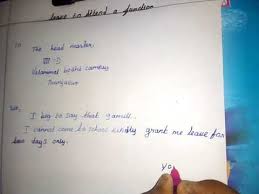 leave to Attend a function
To
The head master.
VII - D
Velammal bodhi campus
Thanjavur
Sir,
I beg to say that
I cannot come to school kindly grant me leave for
two days only.
Yo